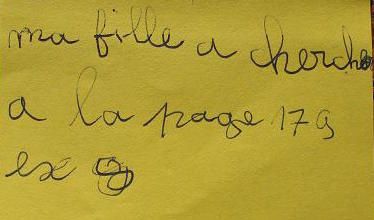 ma fille a cherche
a la page 179
ex